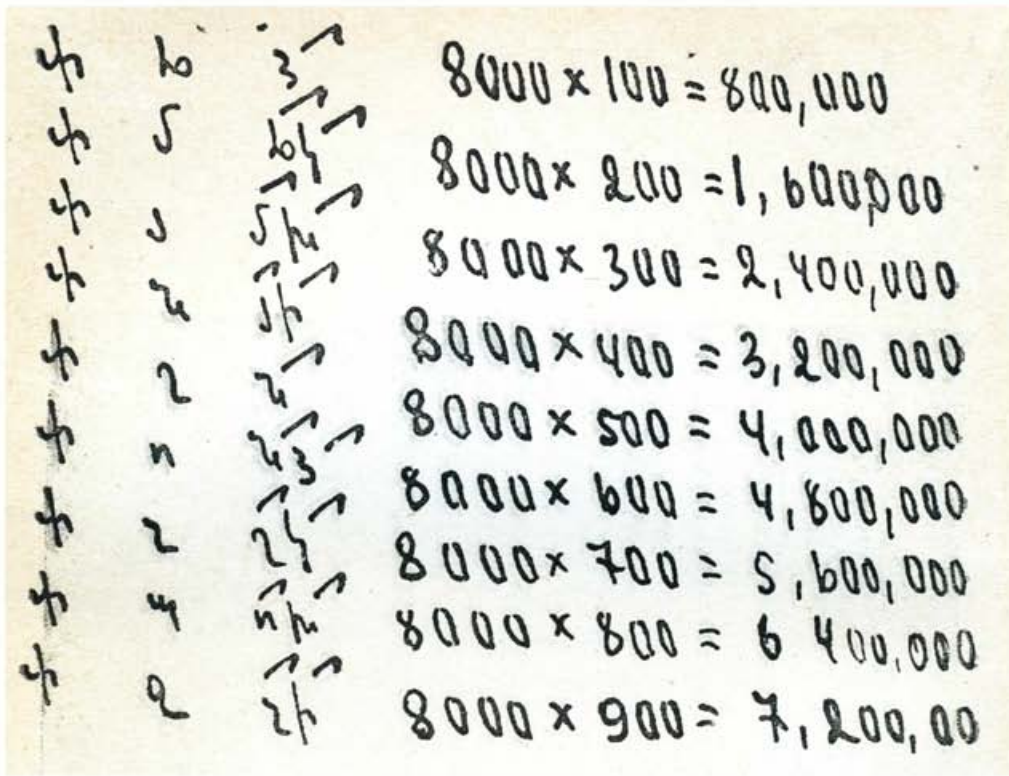 փ ճ ձ 8000 × 100 = 800,000
փ մ ճկ 8000 × 200 = 1,600,000
փ յ մխ 8000 × 300 = 2,400,000
փ ն յի 8000 × 400 = 3,200,000
փ շ ն 8000 × 500 = 4,000,000
փ ո նձ 8000 × 600 = 4,800,000
փ չ շկ 8000 × 700 = 5,600,000
փ պ ոխ 8000 × 800 = 6 400,000
փ ջ չի 8000 × 900 = 7,200,00